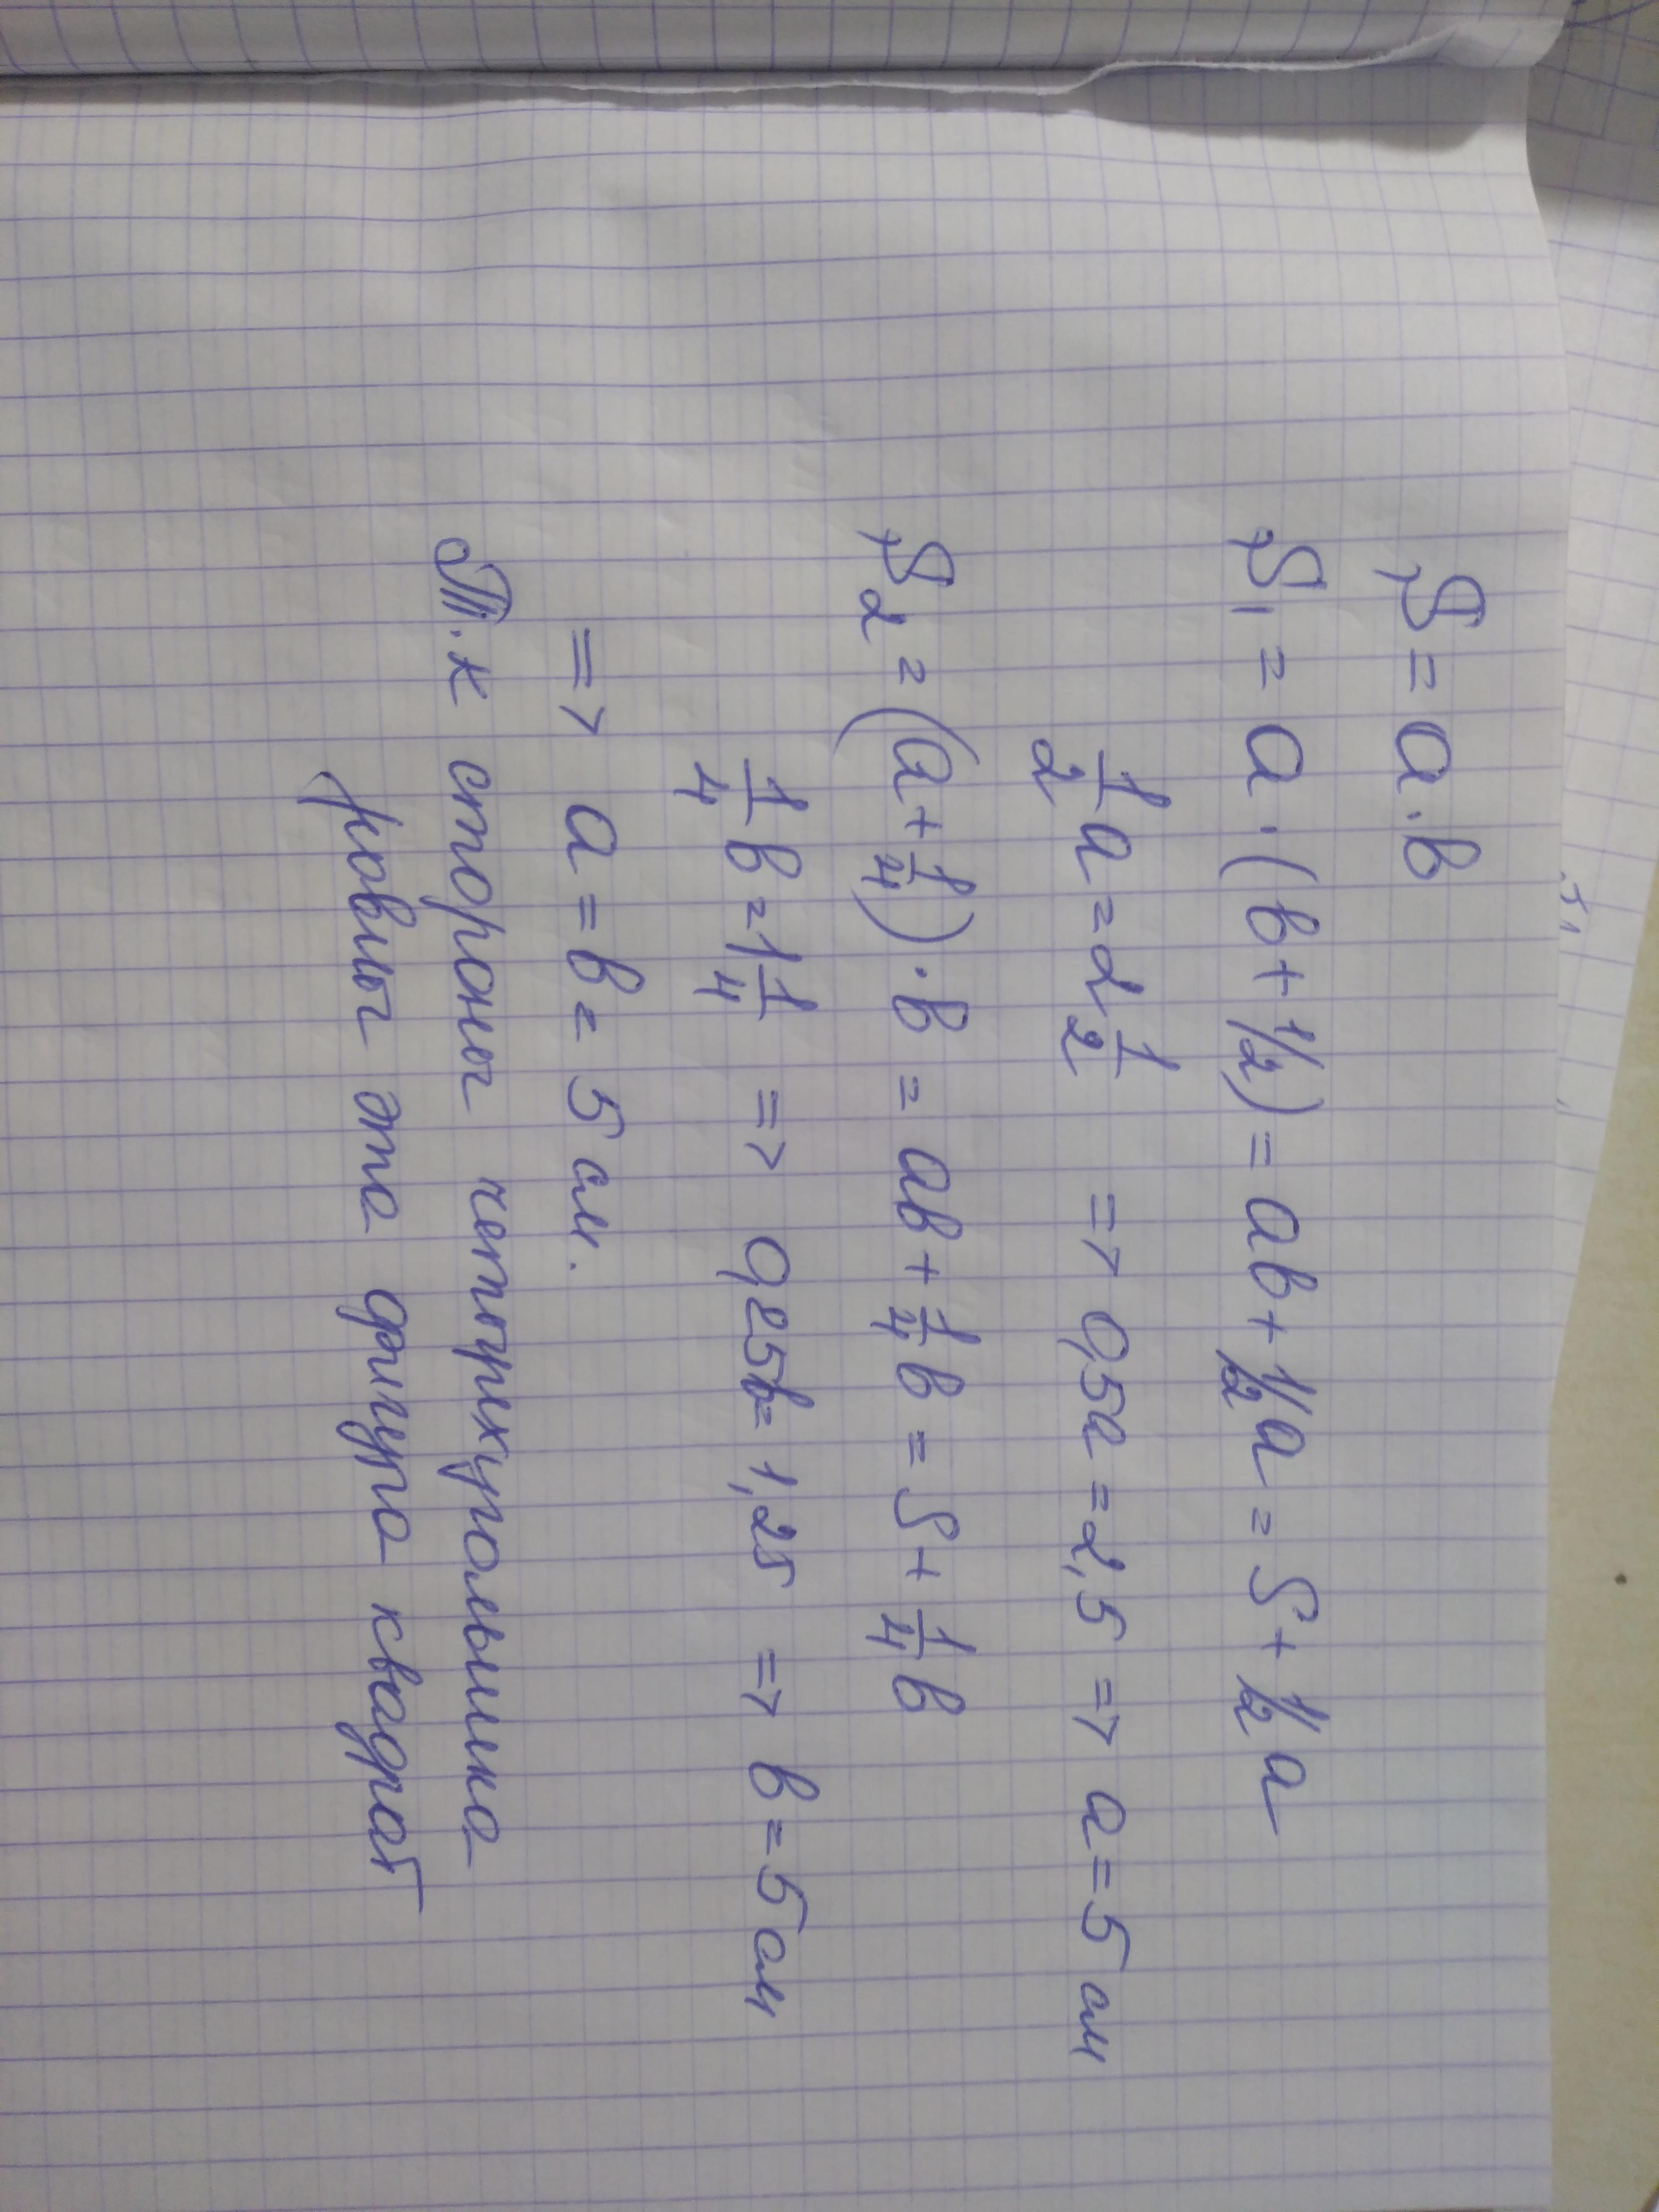 S = a · b
S₁ = a · (b + 1/2) = ab + 1/2 a = S + 1/2 a
1/2 a = 2 1/2 => 0,5a = 2,5 => a = 5 см
S₂ = (a + 1/4) · b = ab + 1/4 b = S + 1/4 b
1/4 b = 1 1/4 => 0,25b = 1,25 => b = 5 см
=> a = b = 5 см.
Т.к стороны четырхугольника
равны эта фигура квадрат